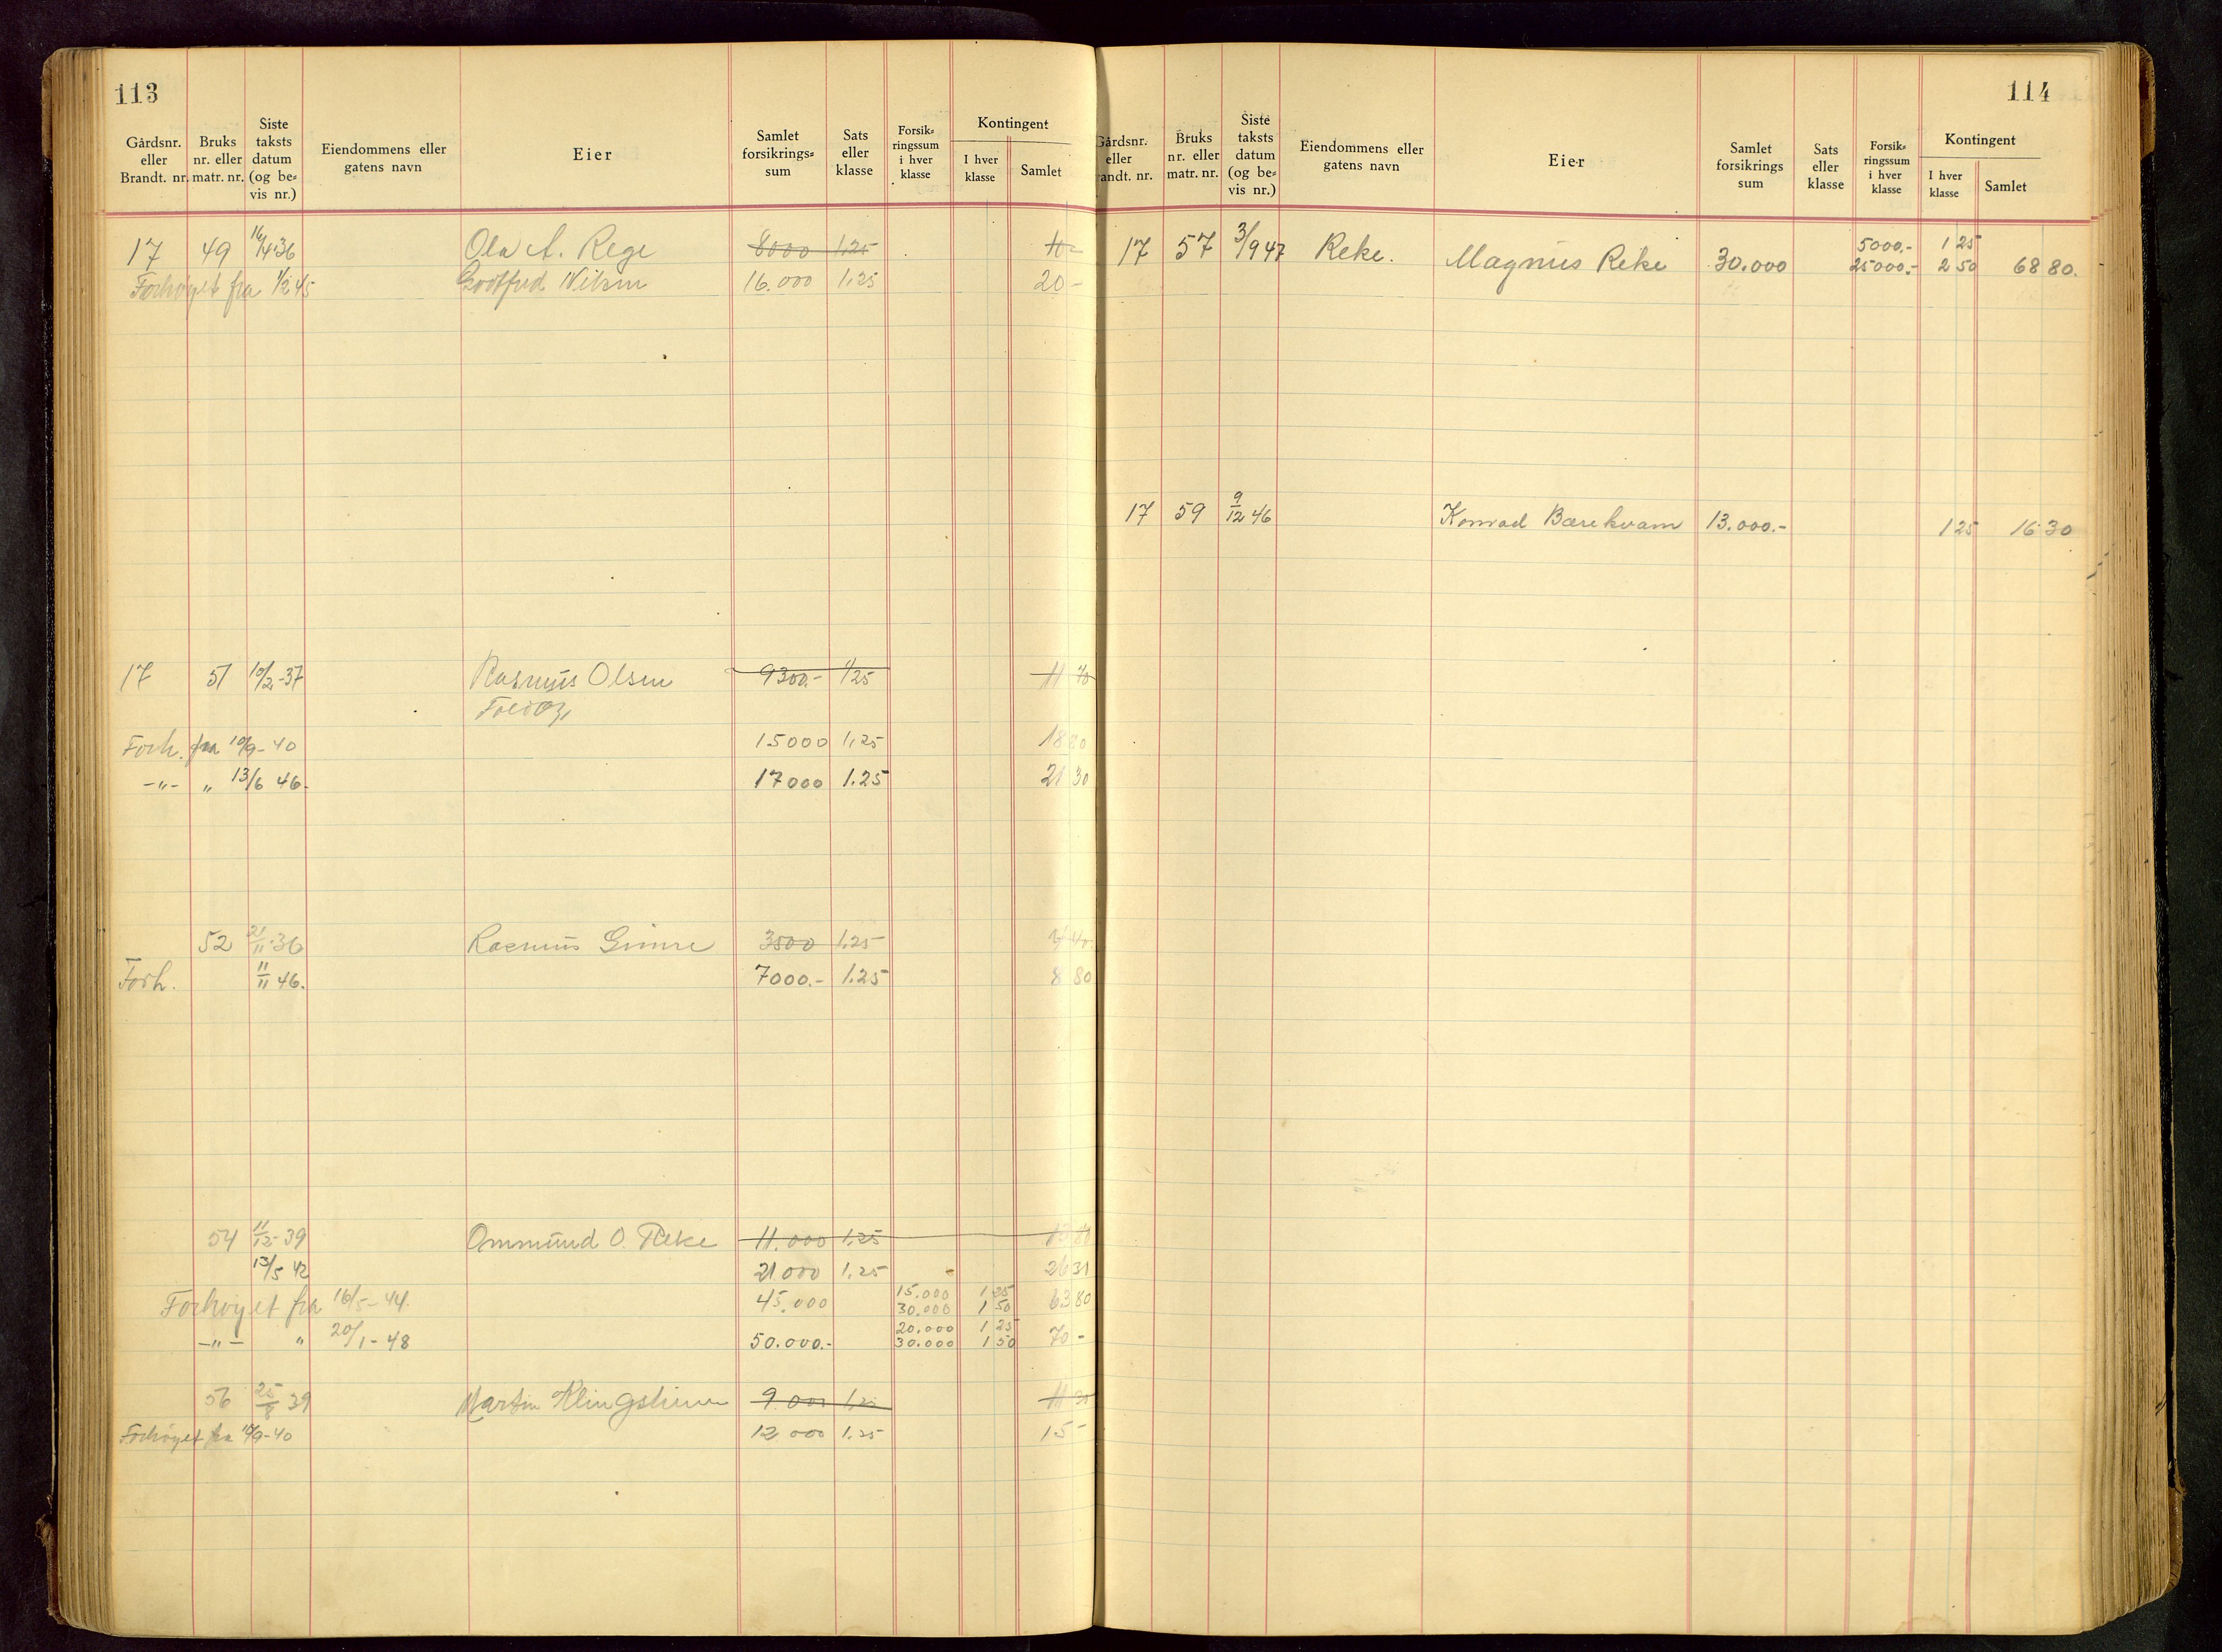 113
Gårdsnr. eller Brandt. nr.
Bruks nr. eller matr. nr.
Siste taksts datum (og be= vis nr.)
Eiendommens eller gatens navn
Eier
Samlet forsikrings= sum
Sats eller klasse
Forsik= ringssum i hver klasse
Kontingent
I hver klasse
Samlet
17 49 16/4 36 Ola A. Rege 8000 1,25 10-
Forhøyet fra 1/2 45 Gottfred Nilsen 16.000 1,25 20-
17 51 10/2-37 Rasmus Olsen 9300.- 1,25 11 70
Forh. fra 10/9-40 15000 1,25 18 80
-"- " 13/6 46- 17000 1.25 21 30
52 21/11-36 Rasmus Gimre 3500 1.25 4 40
Forh. 11/11 46. 7000.- 1.25 8 80
54 11/12-39 Ommund O. Reke 11.000 1,25 13 80
13/5 42 21000 1,25 26 31
Forhøyet fra 16/5-44. 45.000 15.000 1 25 63 80
30.000 1 50
-"- " 20/1-48 50.000.- 20.000 1 25 70-
30.000 1 50
56 25/8 39 Martin Klingsheim 9.000 1,25 11 30
Forhøyet fra 10/9-40 12.000 1.25 15-
114
Gårdsnr. eller Brandt. nr.
Bruks nr. eller matr. nr.
Siste taksts datum (og be= vis nr.)
Eiendommens eller gatens navn
Eier
Samlet forsikrings sum
Sats eller klasse
Forsik= ringssum i hver klasse
Kontingent
I hver klasse
Samlet
17 57 3/9 47 Reke. Magnus Reke 30.000 5000.- 1 25
25000.- 2 50 68 80.
17 59 9/12 46 Konrad Bærheim 13.000.- 1 25 16 30